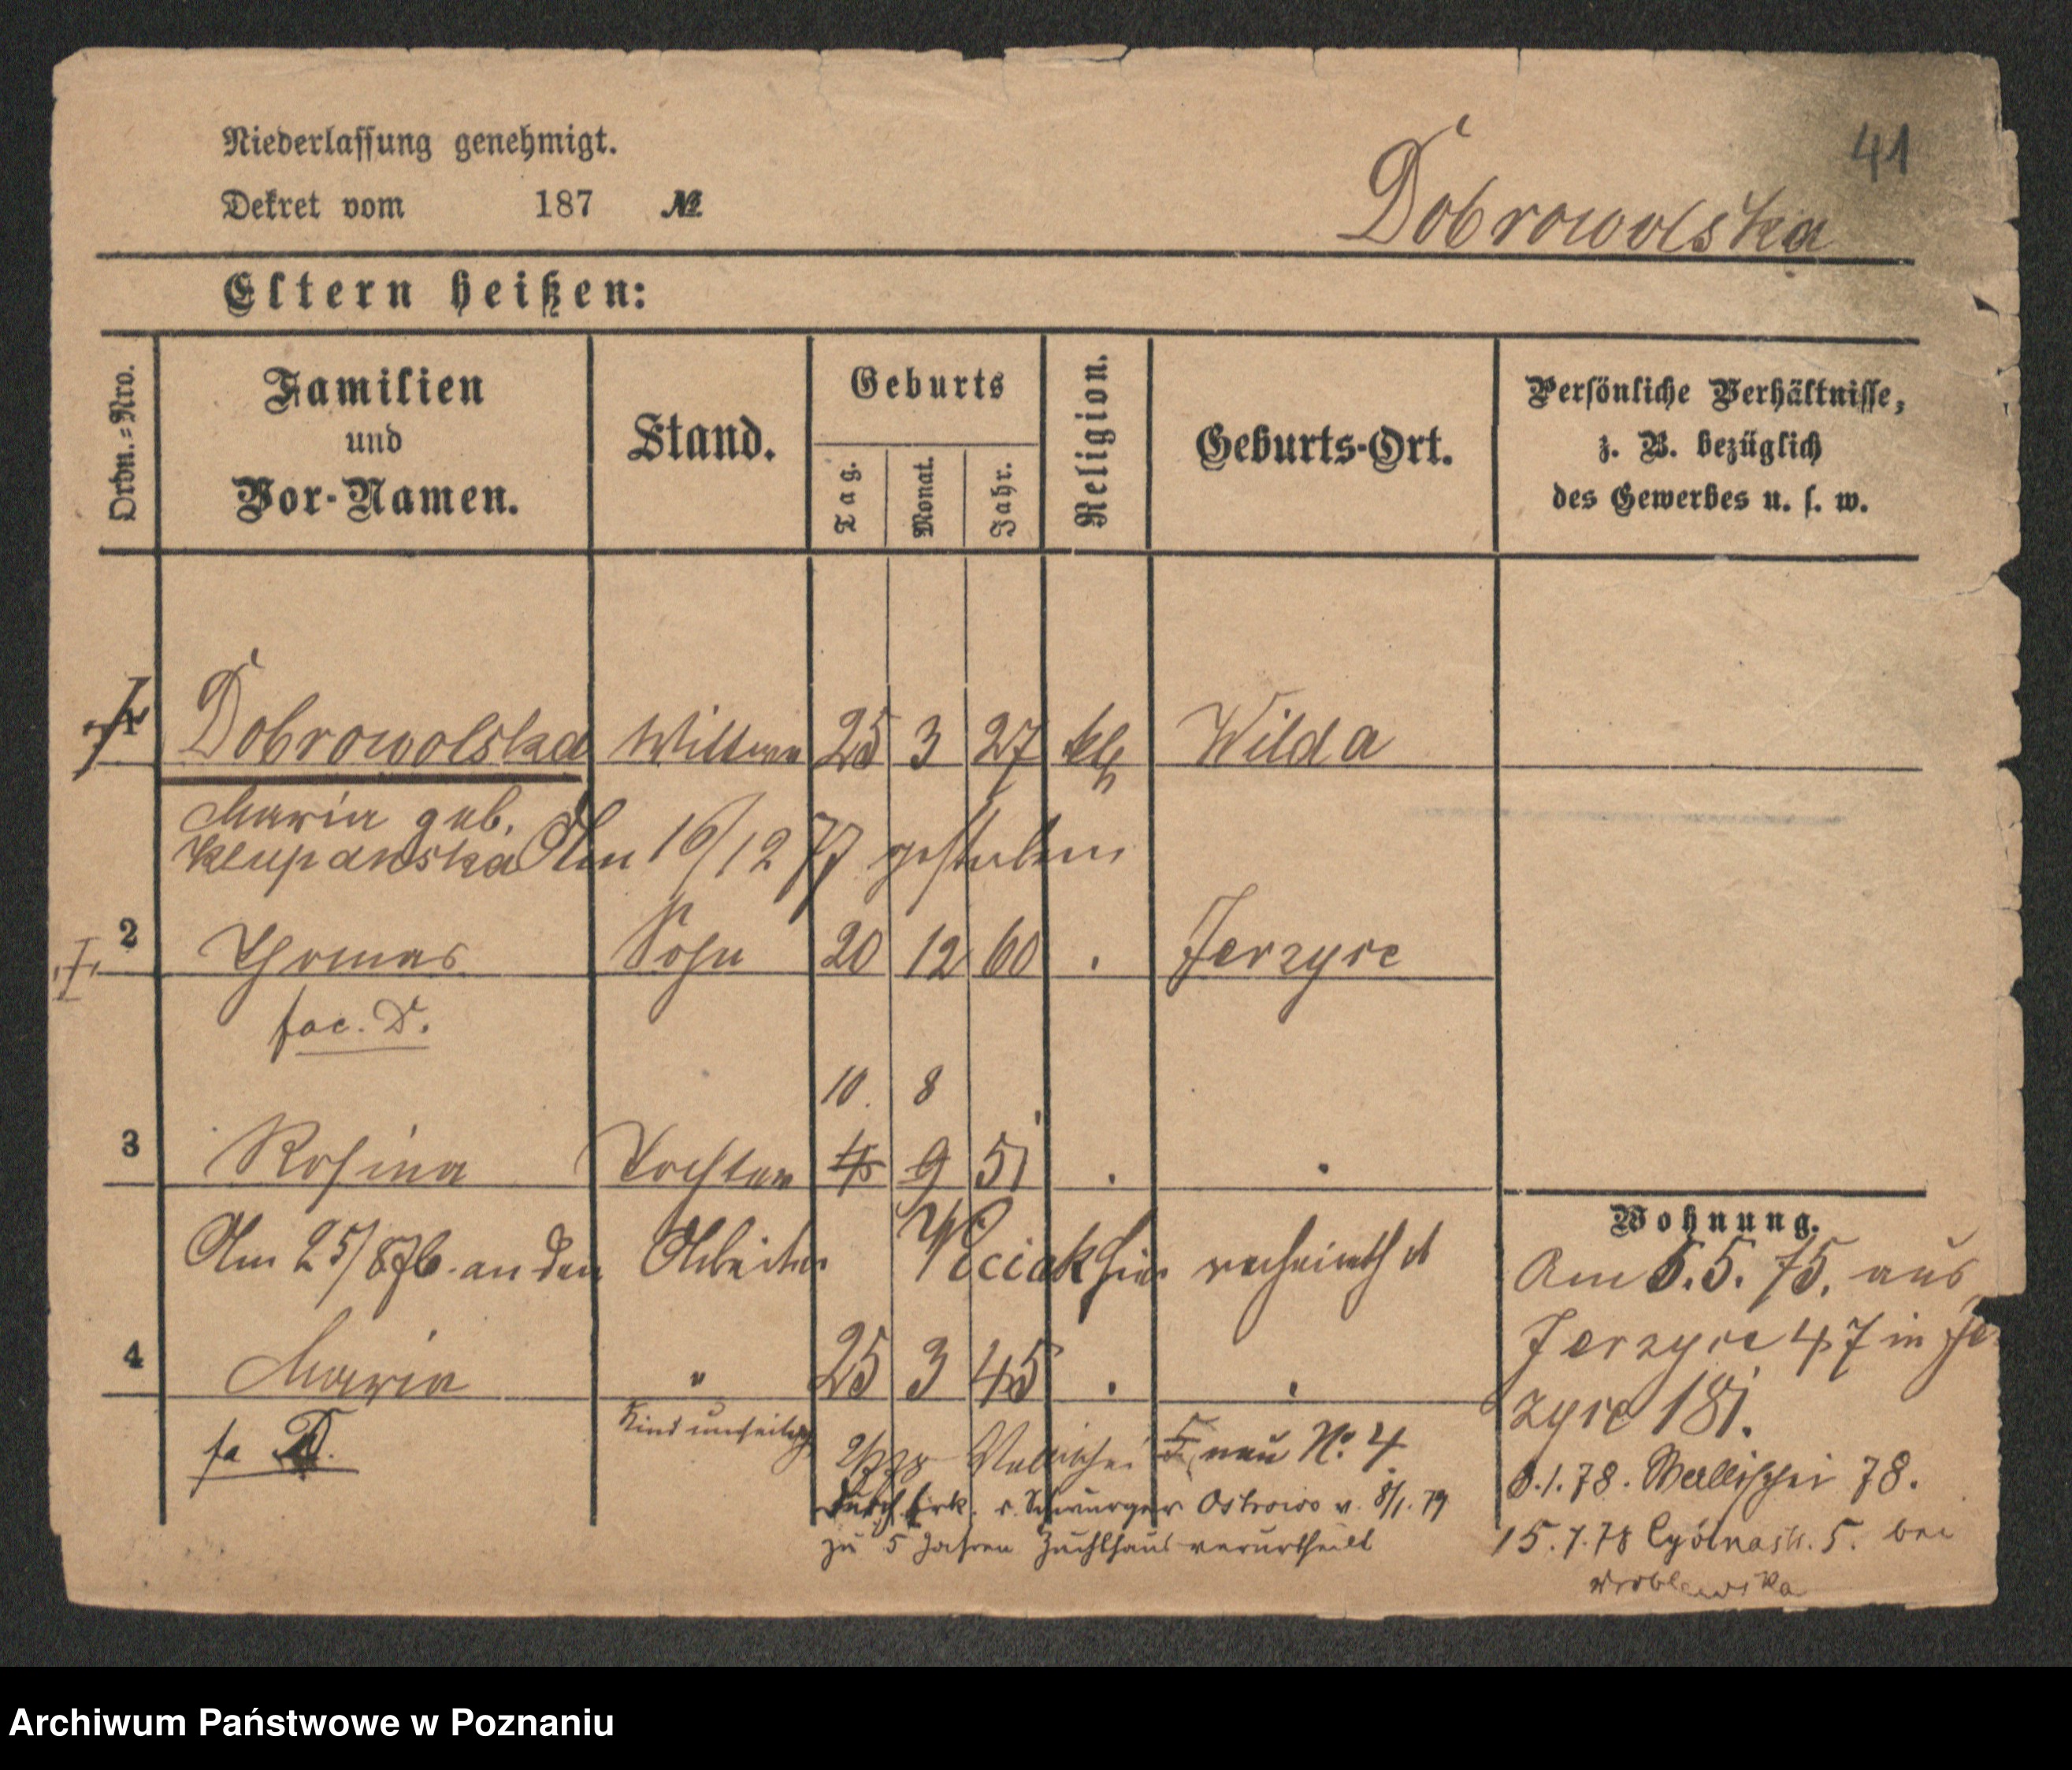 41
Niederlassung genehmigt.
Dekret vom 187 №
Dobrowolska
Eltern heißen:
Ordn.=Nro.
Familien
und
Vor-Namen.
Stand.
Geburts
Tag.
Monat.
Jahr.
Religion.
Geburts-Ort.
Persönliche Verhältnisse,
z. B. bezüglich
des Gewerbes u. s. w.
Dobrowolska Wittwe 25 3 27 kth Wilda
Maria geb.
Am 16/12 77 gestorben
2 Thomas Sohn 20 12 60 . Jerzyce
fac. D.
10. 8
3 Rosina Tochter 9 51 . .
Am 25/8 76 an den Arbeiter hier verheirath et
4 Maria " 25 3 45 . .
fa D.
5 neu No. 4
v. 8/1. 79
zu 5 Jahren Zuchthaus verurtheilt
Wohnung.
Am 5.5.75. aus
Jerzyce 47 in Je
zyce 181.
.1.78. Wallischei 78.
15.7.78 5. bei
Wroblewska
Archiwum Państwowe w Poznaniu